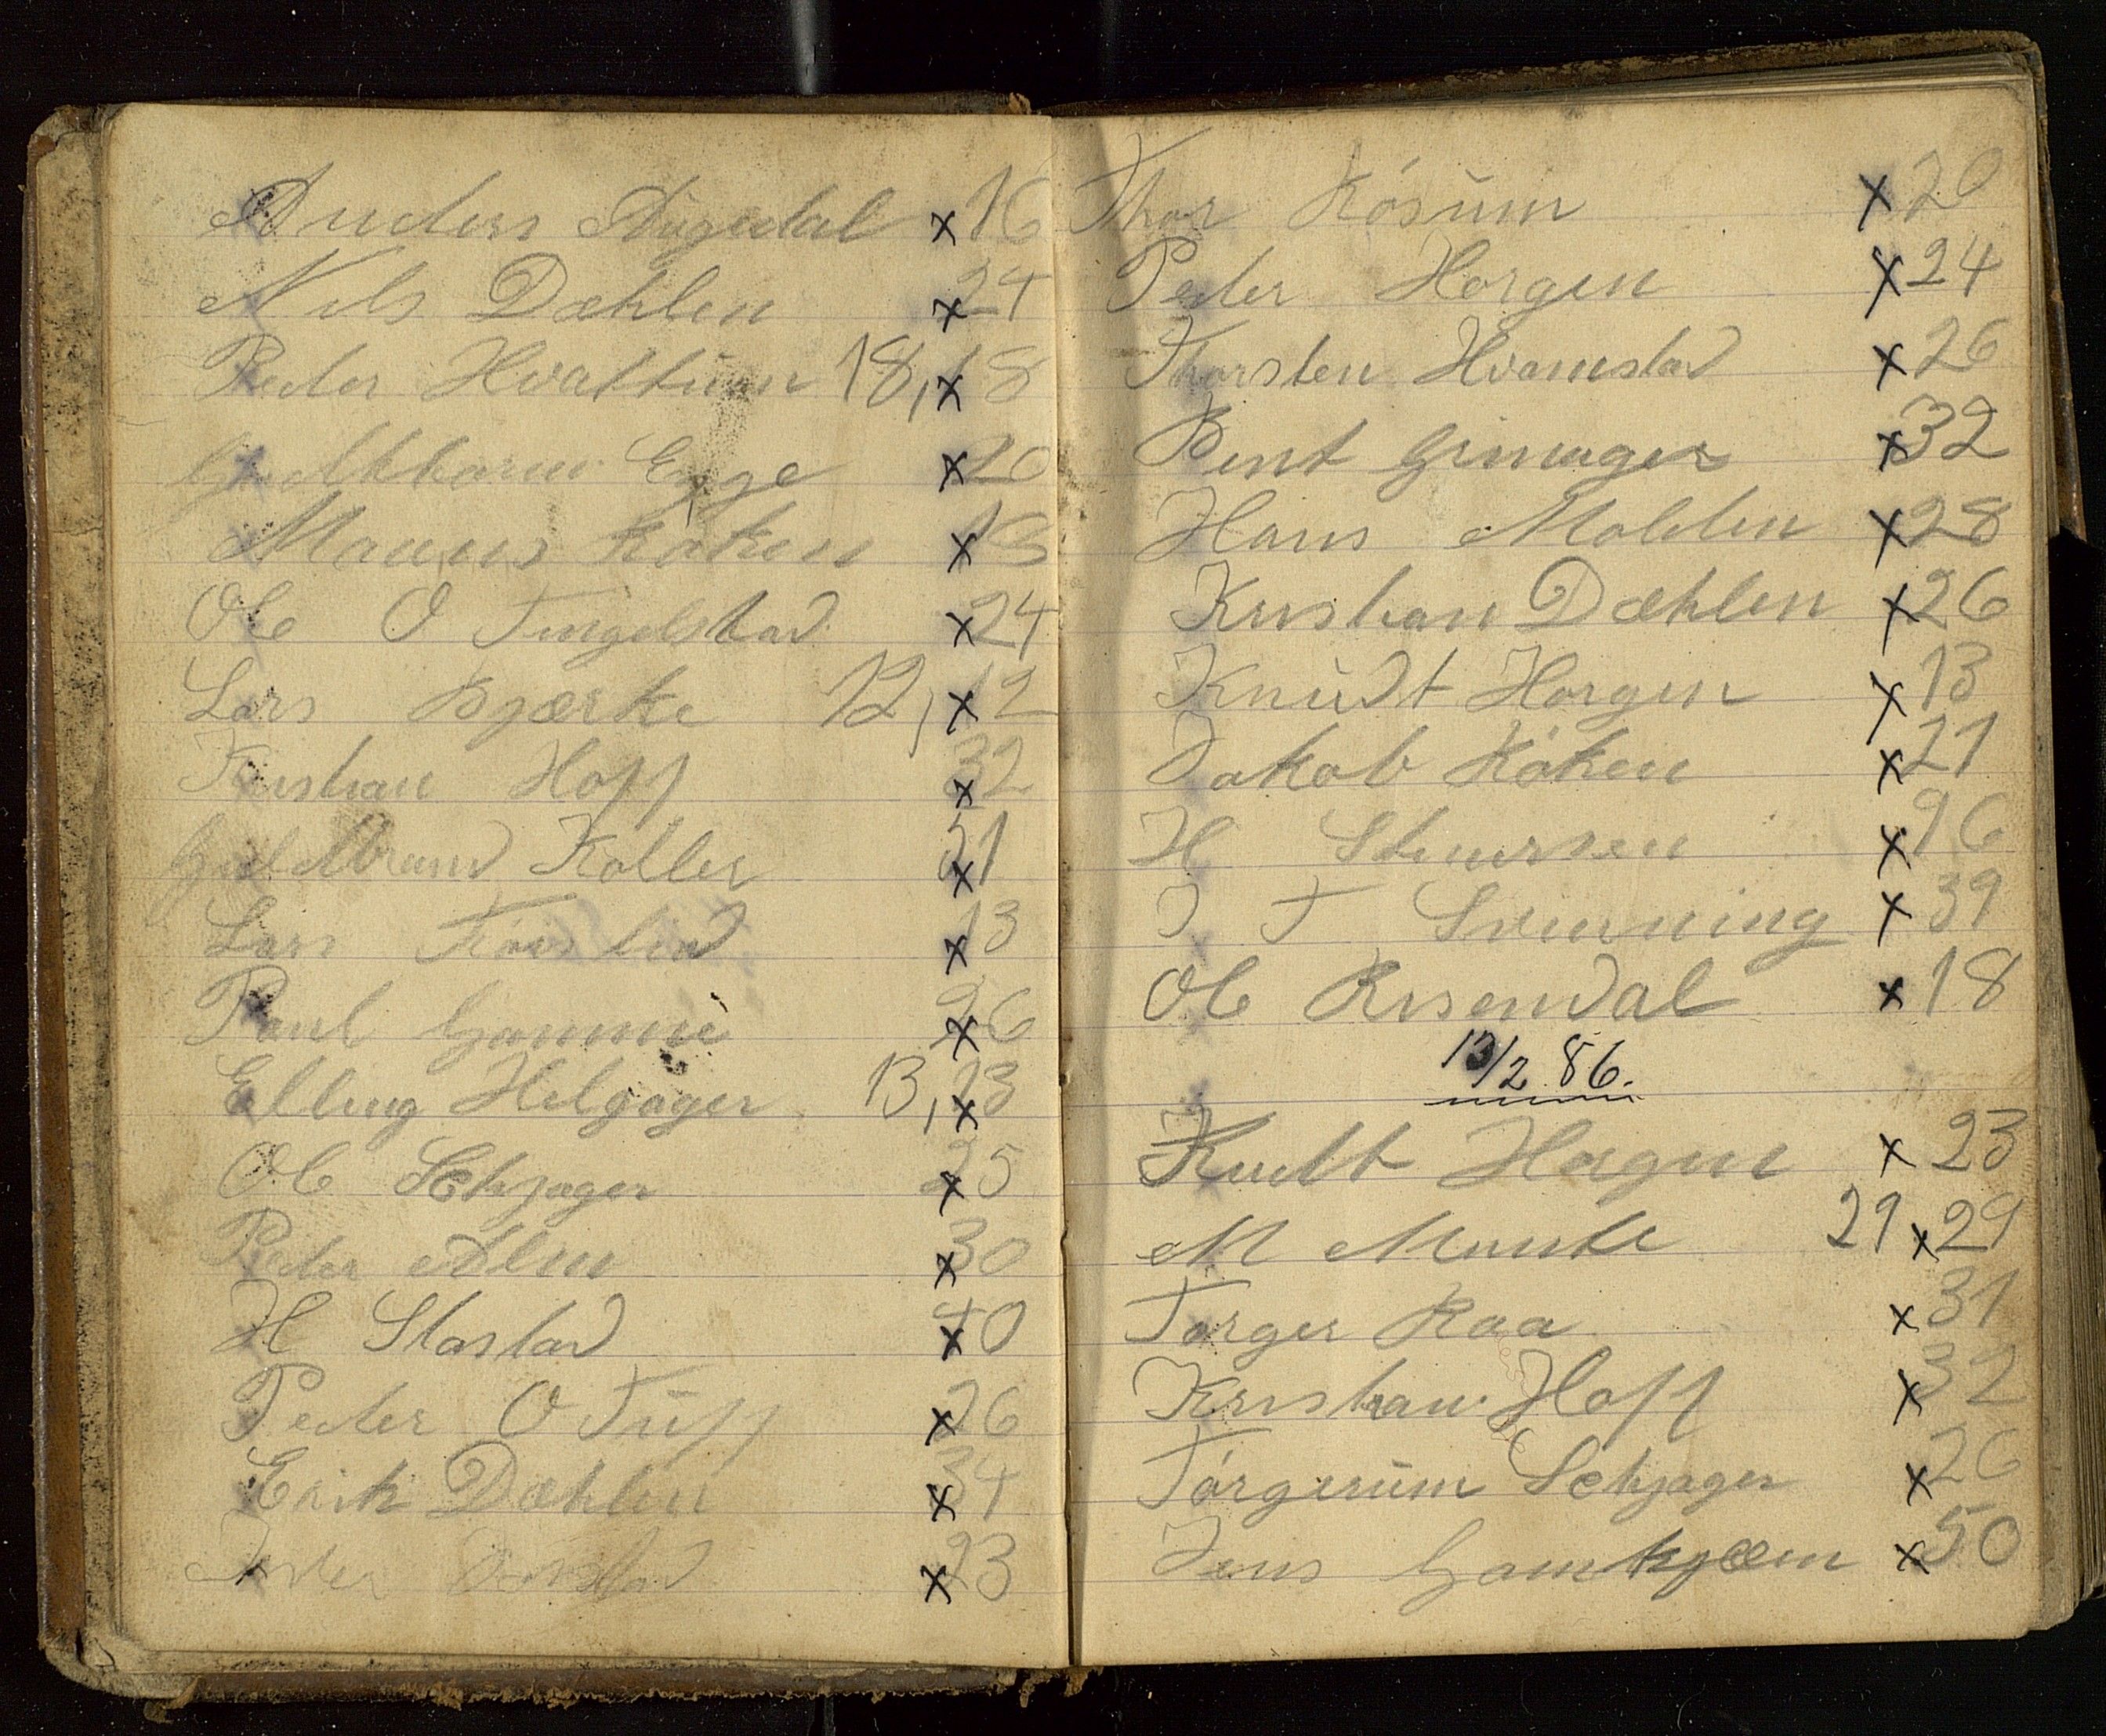 Anders Augedal x 16
Nils Dæhlen x 24
Peder Hvattum 18, x 18
Guldbran Egge x 20
Mauns Køken x 18
Ole O Tingelstad x 24
Lars Bjærke 12, x 12
Kristian Hoff x 32
Guldbrand Koller x 21
Lars x 13
Paul Gamme x 26
Elling Helgager 13, x 13
Ole Schjager x 25
Peder Alm x 30
H Stastad x 40
Peder O Tuff x 26
Erik Dæhlen x 34
x 23
Thor Kósum x 20
Peder Horgen x 24
Thorsten Hvamstad x 26
Bent Grinager x 32
Hans Molden x 28
Kristian Dæhlen x 26
Knudt Horgen x 13
Jakob Køken x 21
H Stenersen x 96
J T Svenning x 39
Ole Risendal x 18
13/2 86.
Knudt Hagen x 23
M Munke 29 x 29
Torger Raa x 31
Kristian Hoff x 32
Tørgerum Schjager x 26
Jens Gamkjæm x 50